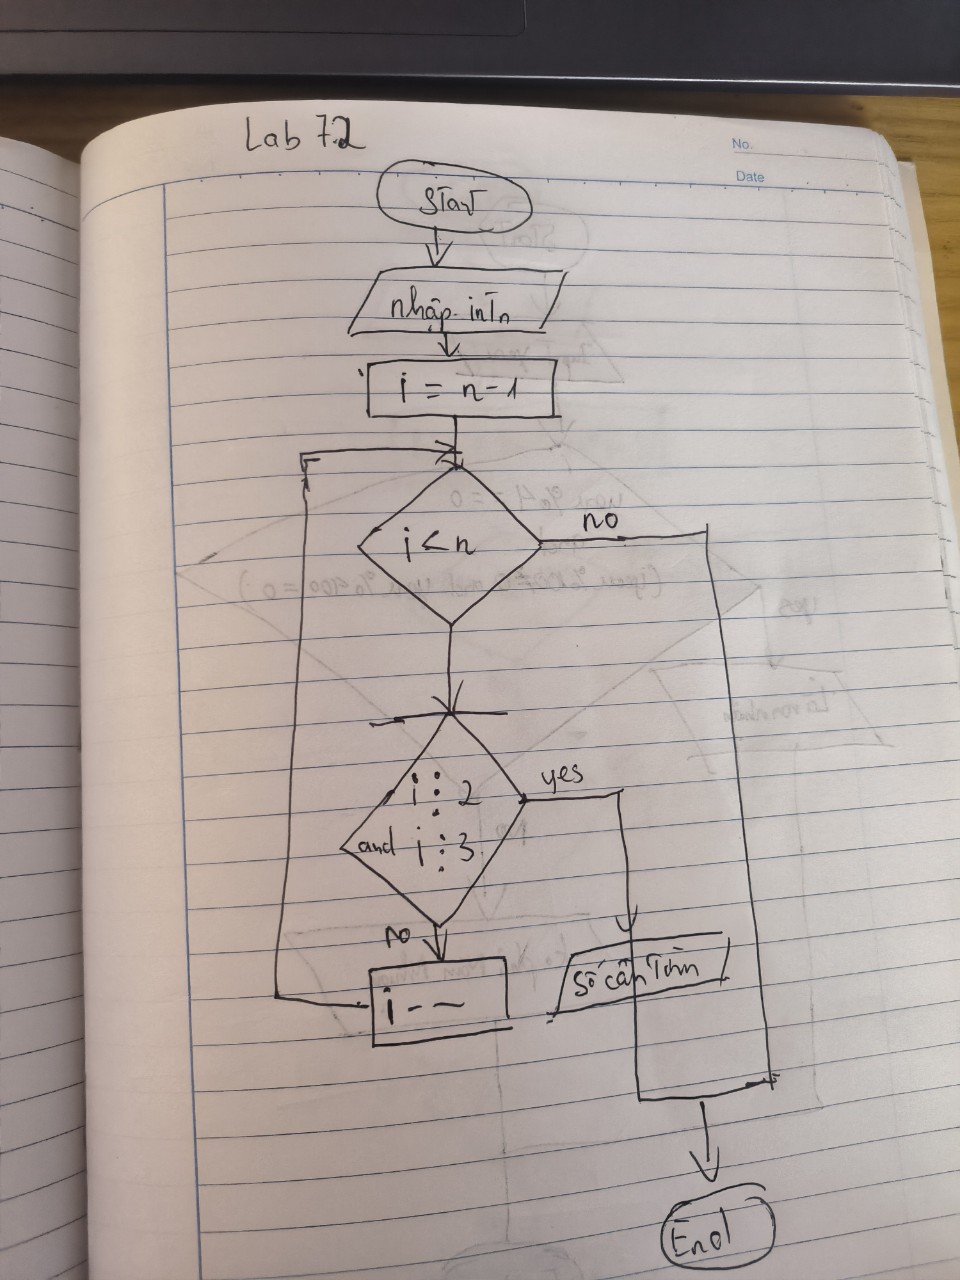 Lab 7.2
No.
Date
Start
nhập int n
i = n-1
i < n
no
i ⋮ 2
yes
and i ⋮ 3
no
i--
Số cần Tìm
End